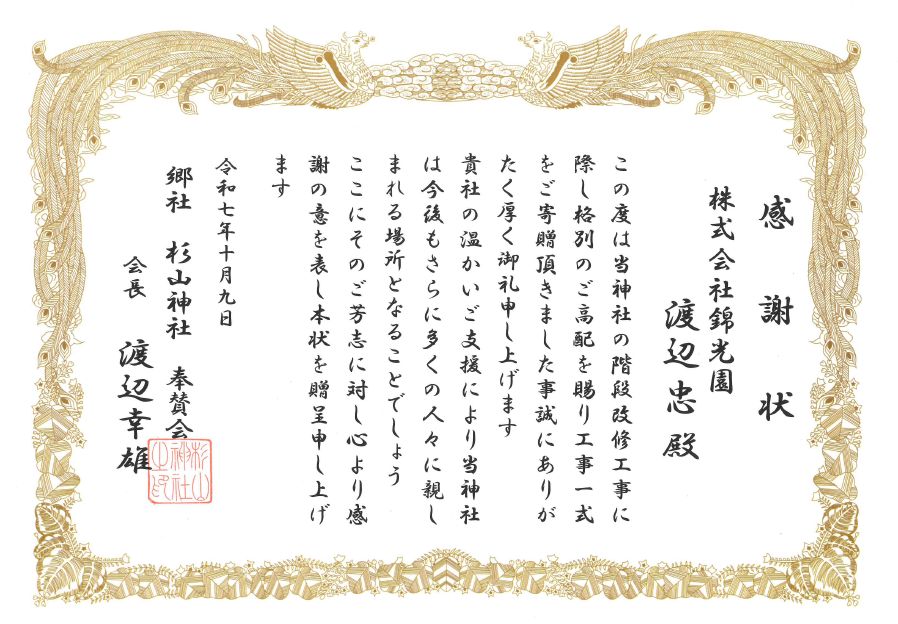 感謝状
株式会社錦光園
渡辺忠殿
この度は当神社の階段改修工事に
際し格別のご高配を賜り工事一式
をご寄贈頂きました事誠にありが
たく厚く御礼申し上げます
貴社の温かいご支援により当神社
は今後もさらに多くの人々に親し
まれる場所となることでしょう
ここにそのご芳志に対し心より感
謝の意を表し本状を贈呈申し上げ
ます
令和七年十月九日
郷社 杉山神社 奉賛会
会長 渡辺幸雄
杉山
神社
之印